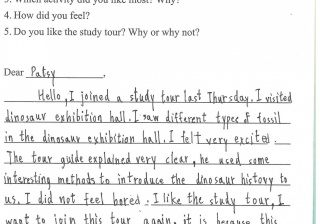 3. Which activity did you like most? Why?
4. How did you feel?
5. Do you like the study tour? Why or why not?
Dear Patsy,
Hello, I joined a study tour last Thursday. I visited
dinosaur exhibition hall. I saw different types of fossil
in the dinosaur exhibition hall. I felt very excited.
The tour guide explained very clear, he used some
interesting methods to introduce the dinosaur history to
us. I did not feel bored. I like the study tour, I
want to join this tour again, it is because this